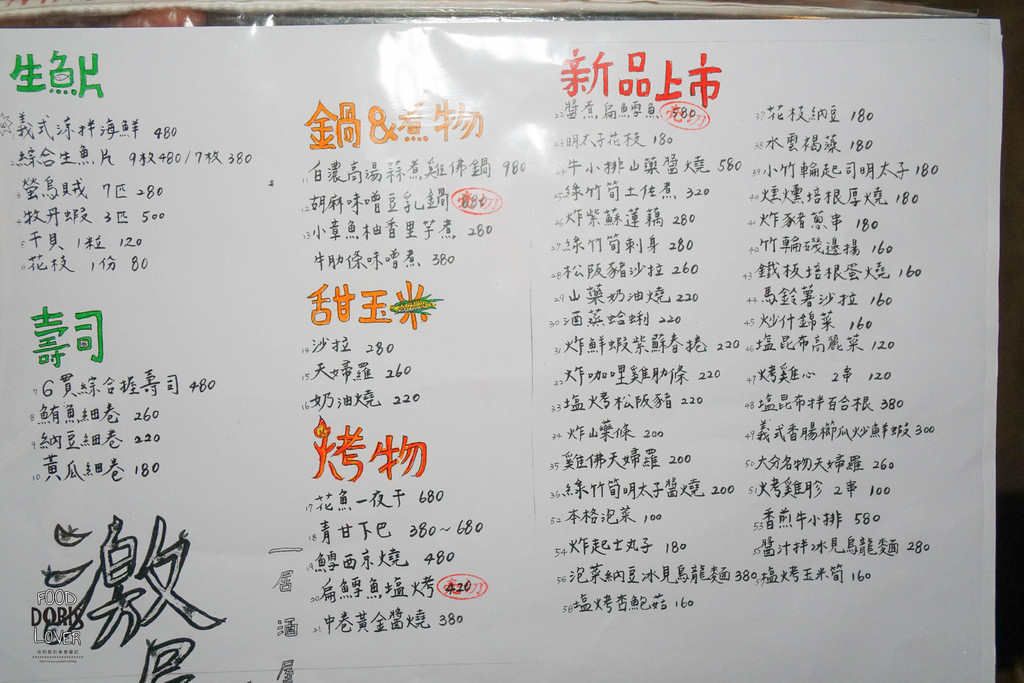 生魚片
1 義式涼拌海鮮 480
2 綜合生魚片 9枚480/7枚380
3 螢烏賊 7匹 280
4 牡丹蝦 3匹 500
5 干貝 1粒 120
6 花枝 1份 80
壽司
7 6貫綜合握壽司 480
8 鮪魚細卷 260
9 納豆細卷 220
10 黃瓜細卷 180
鍋&煮物
11 白濃高湯蒜煮雞佛鍋 980
12 胡麻味噌豆乳鍋
13 小章魚柚香里芋煮 280
牛肋條味噌煮 380
甜玉米
14 沙拉 280
15 天婦羅 260
16 奶油燒 220
烤物
17 花魚一夜干 680
18 青甘下巴 380~680
19 鱈西京燒 480
20 扁鱈魚塩烤 420
21 中卷黃金醬燒 380
新品上市
22 醬煮扁鱈魚 580
23 明太子花枝 180
24 牛小排山藥醬燒 580
25 綠竹筍土佐煮 320
26 炸紫蘇蓮藕 280
27 綠竹筍刺身 280
28 松阪豬沙拉 260
29 山藥奶油燒 220
30 酒蒸蛤蜊 220
31 炸鮮蝦紫蘇春捲 220
32 炸咖哩雞肋條 220
33 塩烤松阪豬 220
34 炸山藥條 200
35 雞佛天婦羅 200
36 綠竹筍明太子醬燒 200
52 本格泡菜 100
54 炸起士丸子 180
56 泡菜納豆冰見烏龍麵 380
58 塩烤杏鮑菇 160
37 花枝納豆 180
38 水雲褐藻 180
39 小竹輪起司明太子 180
40 燻燻培根厚燒 180
41 炸豬蔥串 180
42 竹輪磯邊揚 160
43 鐵板培根蛋燒 160
44 馬鈴薯沙拉 160
45 炒什錦菜 160
46 塩昆布高麗菜 120
47 烤雞心 2串 120
48 塩昆布拌百合根 380
49 義式香腸櫛瓜炒鮮蝦 300
50 大分名物天婦羅 260
51 烤雞胗 2串 100
53 香煎牛小排 580
55 醬汁拌冰見烏龍麵 280
57 塩烤玉米筍 160
激
居
一居酒屋
FOOD
DORIS
LOVER